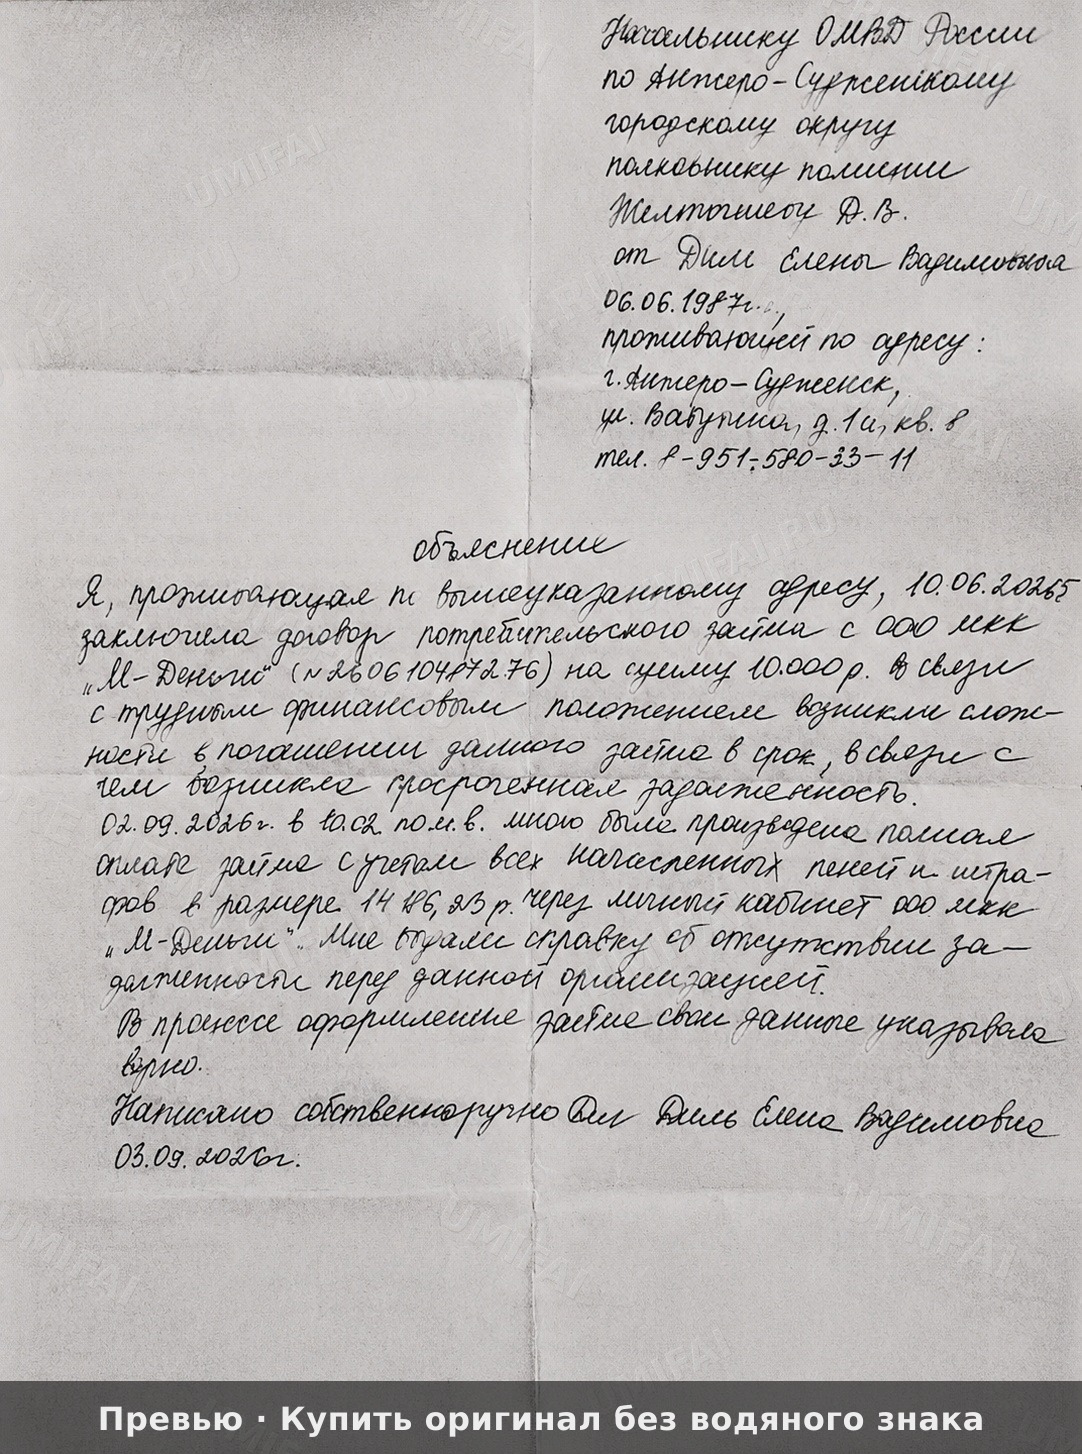 Начальнику ОМВД России
по Анжеро-Судженскому
городскому округу
полковнику полиции
Д.В.
от Диль Елены Вадимовны
06.06.1987г.,
проживающей по адресу:
г. Анжеро-Судженск,
ул. д. 1а, кв. 8
тел. 8-951-580-33-11
объяснение
Я, проживающая по вышеуказанному адресу, 10.06.
заключила договор потребительского займа с ООО МКК
„М-Деньги" на сумму 10.000 р. В связи
с трудным финансовым положением возникли слож-
ности в погашении данного займа в срок, в связи с
чем возникла просроченная задолженность.
02.09.2026г. в 10.02 по м.в. мною была произведена полная
оплата займа с учетом всех начисленных пеней и штра-
фов в размере р. через личный кабинет ООО МКК
„М-Деньги". Мне выдали справку об отсутствии за-
долженности перед данной организацией.
В процессе оформление займа свои данные указывала
верно.
Написано собственноручно Дил Диль Елена Вадимовна
03.09.2026г.
UMIFAI
UMIFAI
UMIFAI
UMIFAI
Превью · Купить оригинал без водяного знака